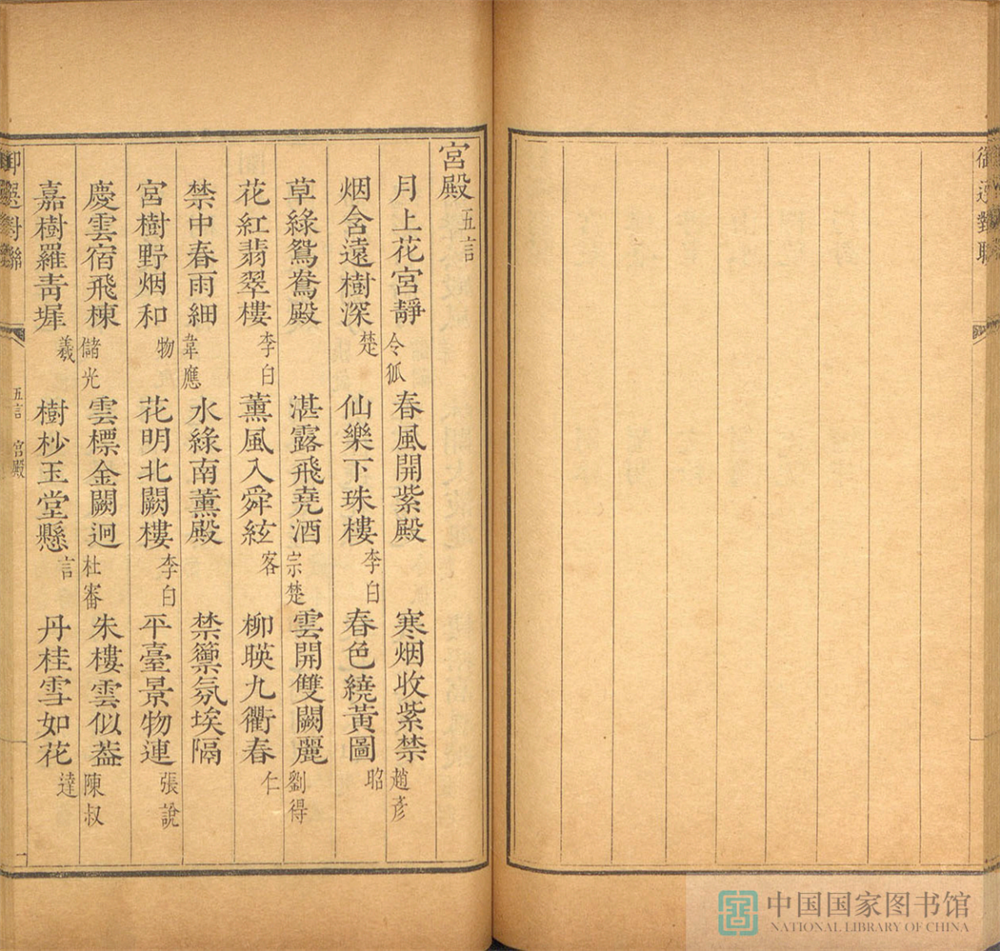 宮殿 五言
月上花宮靜 令狐 春風開紫殿 寒烟收紫禁 趙彥
烟含遠樹深 楚 仙樂下珠樓 李白 春色繞黃圖 昭
草綠鴛鴦殿 湛露飛堯酒 宗楚 雲開雙闕麗 劉得
花紅翡翠樓 李白 薰風入舜絃 客 柳暎九衢春 仁
禁中春雨細 韋應 水綠南薰殿 禁籞氛埃隔
宮樹野烟和 物 花明北闕樓 李白 平臺景物連 張說
慶雲宿飛棟 儲光 雲標金闕迥 杜審 朱樓雲似葢 陳叔
嘉樹羅青墀 羲 樹杪玉堂懸 言 丹桂雪如花 達
御選對聯
五言 宮殿
一
御選對聯
中国国家图书馆
NATIONAL LIBRARY OF CHINA